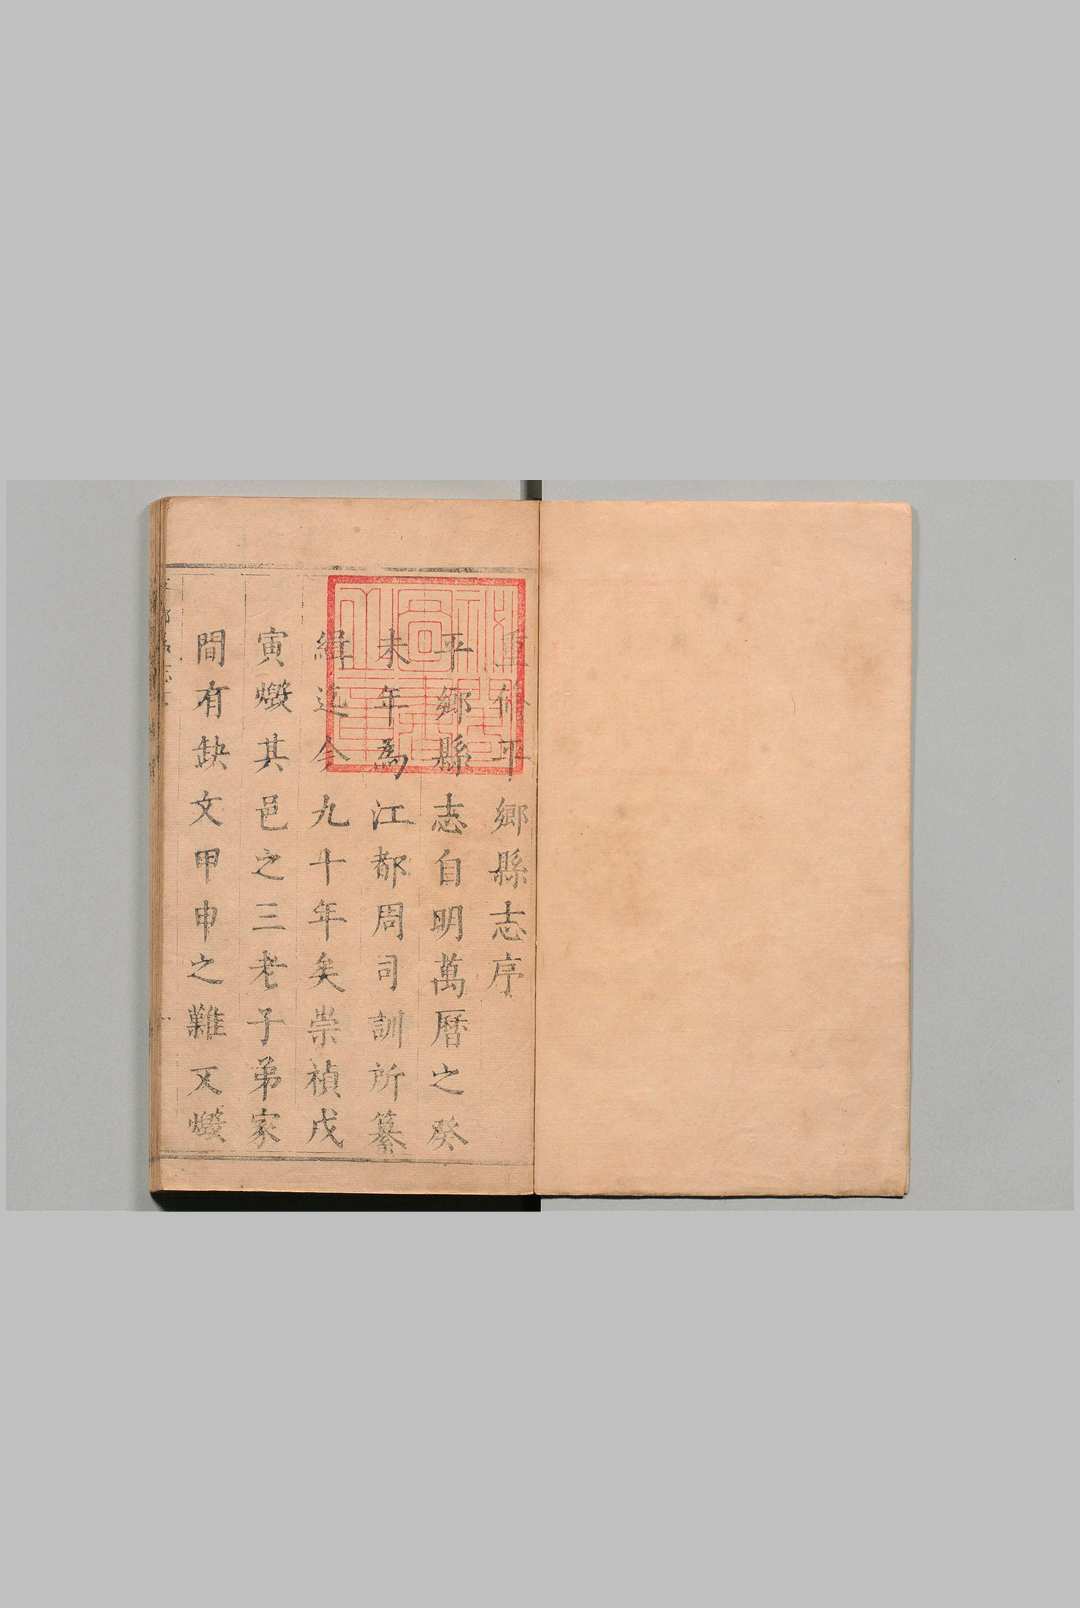 重修平鄉縣志序
平鄉縣志自明萬曆之癸
未年為江都周司訓所纂
緝迄今九十年矣崇禎戊
寅燬其邑之三老子弟家
間有缺文甲申之難又燬